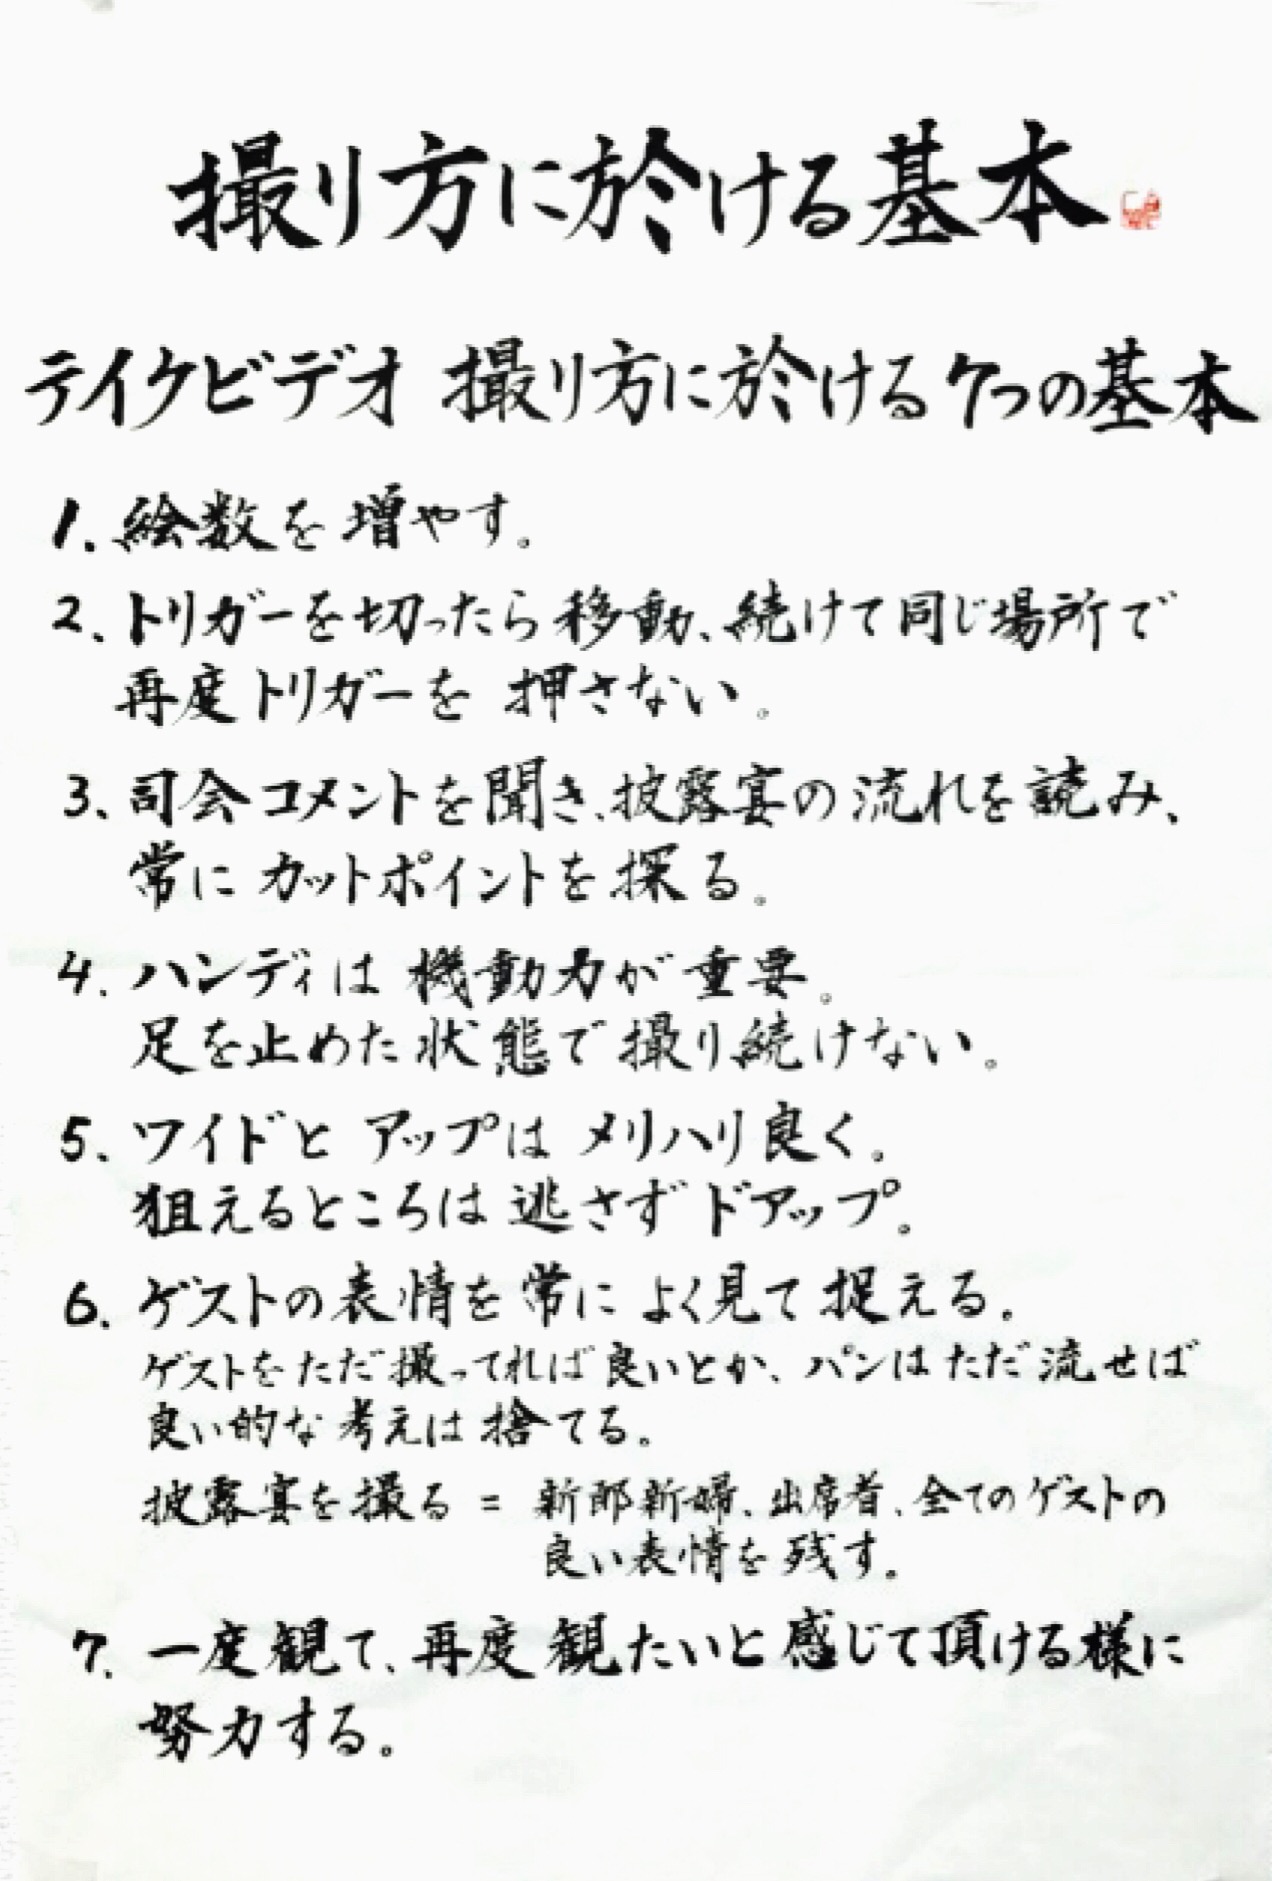 撮り方に於ける基本
テイクビデオ 撮り方に於ける7つの基本
1. 絵数を増やす。
2、トリガーを切ったら移動、続けて同じ場所で
再度トリガーを押さない。
3、司会コメントを聞き、披露宴の流れを読み、
常にカットポイントを探る。
4、ハンディは機動力が重要。
足を止めた状態で撮り続けない。
5、ワイドとアップはメリハリ良く。
狙えるところは逃さずドアップ。
6、ゲストの表情を常によく見て捉える。
ゲストをただ撮ってれば良いとか、パンはただ流せば
良い的な考えは捨てる。
披露宴を撮る = 新郎新婦、出席者、全てのゲストの
良い表情を残す。
7. 一度観て、再度観たいと感じて頂ける様に
努力する。